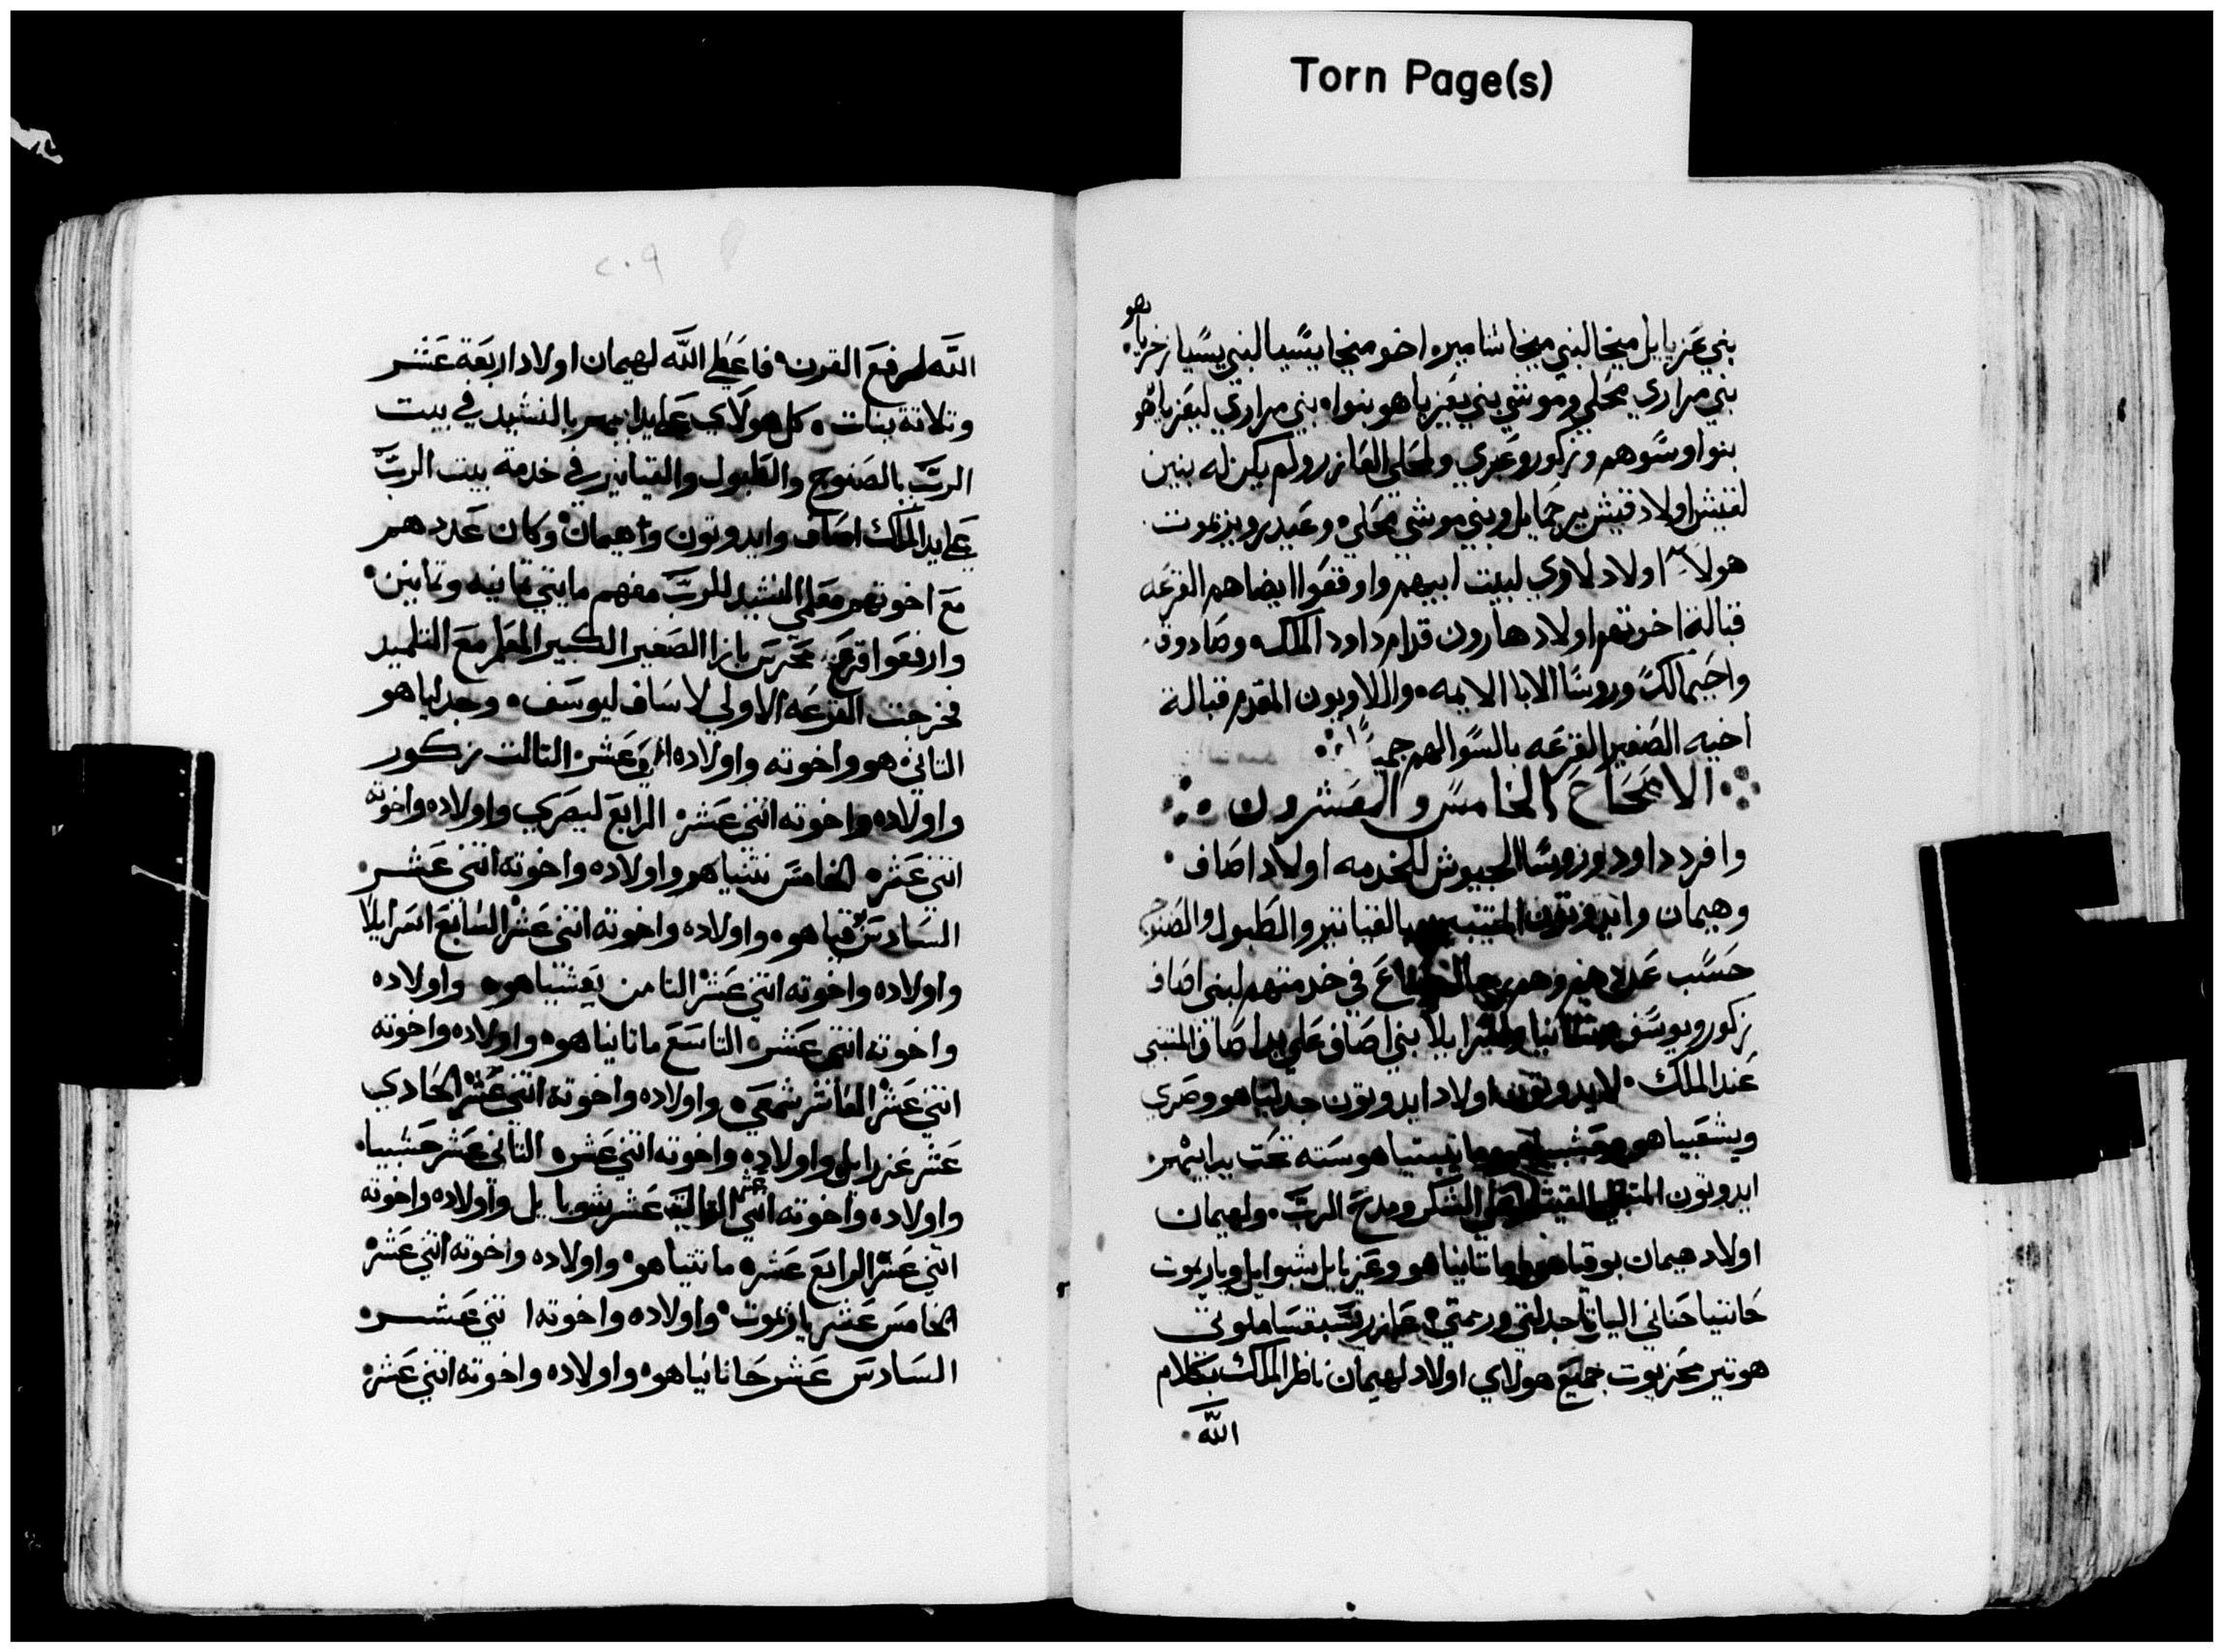 Torn Page(s)
بني عزيايل ميخا لبني ميخا شاميره اخو ميخا يسيا لبني يسيا زخرياهو
بني مراري محلي وموشي بني يعزياهو بنواه بني مراري ليعزياهو
بنوا وسوهم وزكور وعبري ولمحلي العازر ولم يكن له بنين
لقيش اولاد قيش يرحمايل وبني موشي محلي وعيدر ويزموت
هولاء اولاد لاوي لبيت ابيهم واوقفوا ايضا هم القرعه
قبالة اخوتهم اولاد هارون قدام داود الملك وصادوق
واخيمالك وروسا الابا الايمه واللاويون المقدم قبالة
اخيه الصغير القرعه بالسوا لهم جميعا
الاصحاح الخامس والعشرون
وافرد داود وروسا الجيوش للخدمه اولاد اصاف
وهيمان وايدوتون بالقياتير والطبول والصنوج
حسب عددهم وهم في خدمتهم لبني اصاف
زكور ويوسف بني اصاف علي يد اصاف المتنبي
عند الملك لايدوتون اولاد ايدوتون جدلياهو وصري
ويشعيياهو ستة تحت يد ابيهم
ايدوتون الشكر ومدح الرب ولهيمان
اولاد هيمان بوقياهو ماتانياهو وعزيايل شبوايل وياريموت
حانتيا حناني الياتا جدلتي
هوتير محزيوت جميع هولاي اولاد لهيمان ناظر الملك بكلام
الله
٢٠٩
الله لرفع القرن فاعطي الله لهيمان اولاد اربعة عشر
وتلاتة بنات كل هولاي علي يد ابيهم بالنشيد في بيت
الرب بالصنوج والطبول والقياتير في خدمة بيت الرب
علي يد الملك اصاف وايدوتون واهيمان وكان عددهم
مع اخوتهم معلمي النشيد للرب مايتي تمانيه وتمانين
وارفعوا قرع محرس بازا الصغير الكبير المعلم مع التلميد
فخرجت القرعه الاولي لاساف ليوسف وجدلياهو
التاني هو واخوته واولاده عشر التالت زكور
واولاده واخوته اتني عشر الرابع ليصري واولاده واخوته
اتني عشر الخامس نتنياهو واولاده واخوته اتني عشر
السادس بقياهو واولاده واخوته اتني عشر السابع اسرايلا
واولاده واخوته اتني عشر التامن يعشياهو واولاده
واخوته اتني عشر التاسع ماتانياهو واولاده واخوته
اتني عشر العاشر شمعي واولاده واخوته اتني عشر الحادي
عشر عزرايل واولاده واخوته اتني عشر التاني عشر حشبيا
واولاده واخوته اتني عشر التالت عشر شوبايل واولاده واخوته
اتني عشر الرابع عشر ماتتياهو واولاده واخوته اتني عشر
الخامس عشر ياريموت واولاده واخوته اتني عشر
السادس عشر حانانياهو واولاده واخوته اتني عشر